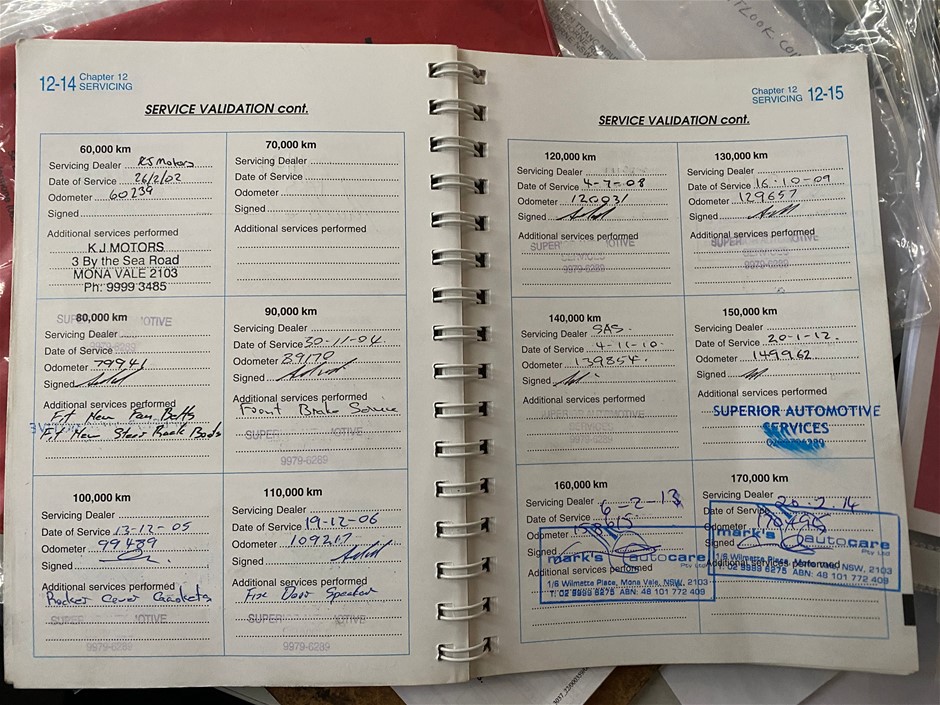 TLOOK CON
12-14 Chapter 12
SERVICING
SERVICE VALIDATION cont.
60,000 km
Servicing Dealer KJ Motors
Date of Service 26/2/02
Odometer 60239
Signed
Additional services performed
K J MOTORS
3 By the Sea Road
MONA VALE 2103
Ph: 9999 3485
70,000 km
Servicing Dealer
Date of Service
Odometer
Signed
Additional services performed
80,000 km
Servicing Dealer
Date of Service
Odometer 79941
Signed
Additional services performed
Fit New Fan Belts
Fit New Steer Rack Boots
90,000 km
Servicing Dealer
Date of Service 30-11-04.
Odometer 89170
Signed
Additional services performed
Front Brake Service
SUPER
9979-6289
100,000 km
Servicing Dealer
Date of Service 13-12-05
Odometer 99439
Signed
Additional services performed
Rocker Cover Gaskets
SUPER OTIVE
9979-6289
110,000 km
Servicing Dealer
Date of Service 19-12-06
Odometer 109217
Signed
Additional services performed
Fix Door Speaker
SUPER OTIVE
9979-6289
Chapter 12
SERVICING 12-15
SERVICE VALIDATION cont.
120,000 km
Servicing Dealer
Date of Service 4-7-08
Odometer 120031
Signed
Additional services performed
SUPER OTIVE
SERVICES
9979-6289
130,000 km
Servicing Dealer
Date of Service 16-10-09
Odometer 129657
Signed
Additional services performed
SUPERIOR AUTOMOTIVE
SERVICES
9979-6289
140,000 km
Servicing Dealer SAS.
Date of Service 4-11-10.
Odometer 139854.
Signed
Additional services performed
SUPER OTIVE
SERVICES
9979-6289
150,000 km
Servicing Dealer
Date of Service 20-1-12.
Odometer 149962
Signed
Additional services performed
SUPERIOR AUTOMOTIVE
SERVICES
160,000 km
Servicing Dealer
Date of Service 6-2-13
Odometer
Signed
mark's autocare
Pty Ltd
Additional services performed
1/6 Wilmette Place, Mona Vale, NSW, 2103
T: 02 9999 6275 ABN: 48 101 772 409
170,000 km
Servicing Dealer
Date of Service 20-2-14
Odometer
Signed
mark's autocare
Pty Ltd
1/6 Wilmette Place, Mona Vale, NSW, 2103
Additional services performed
T: 02 9999 6275 ABN: 48 101 772 409